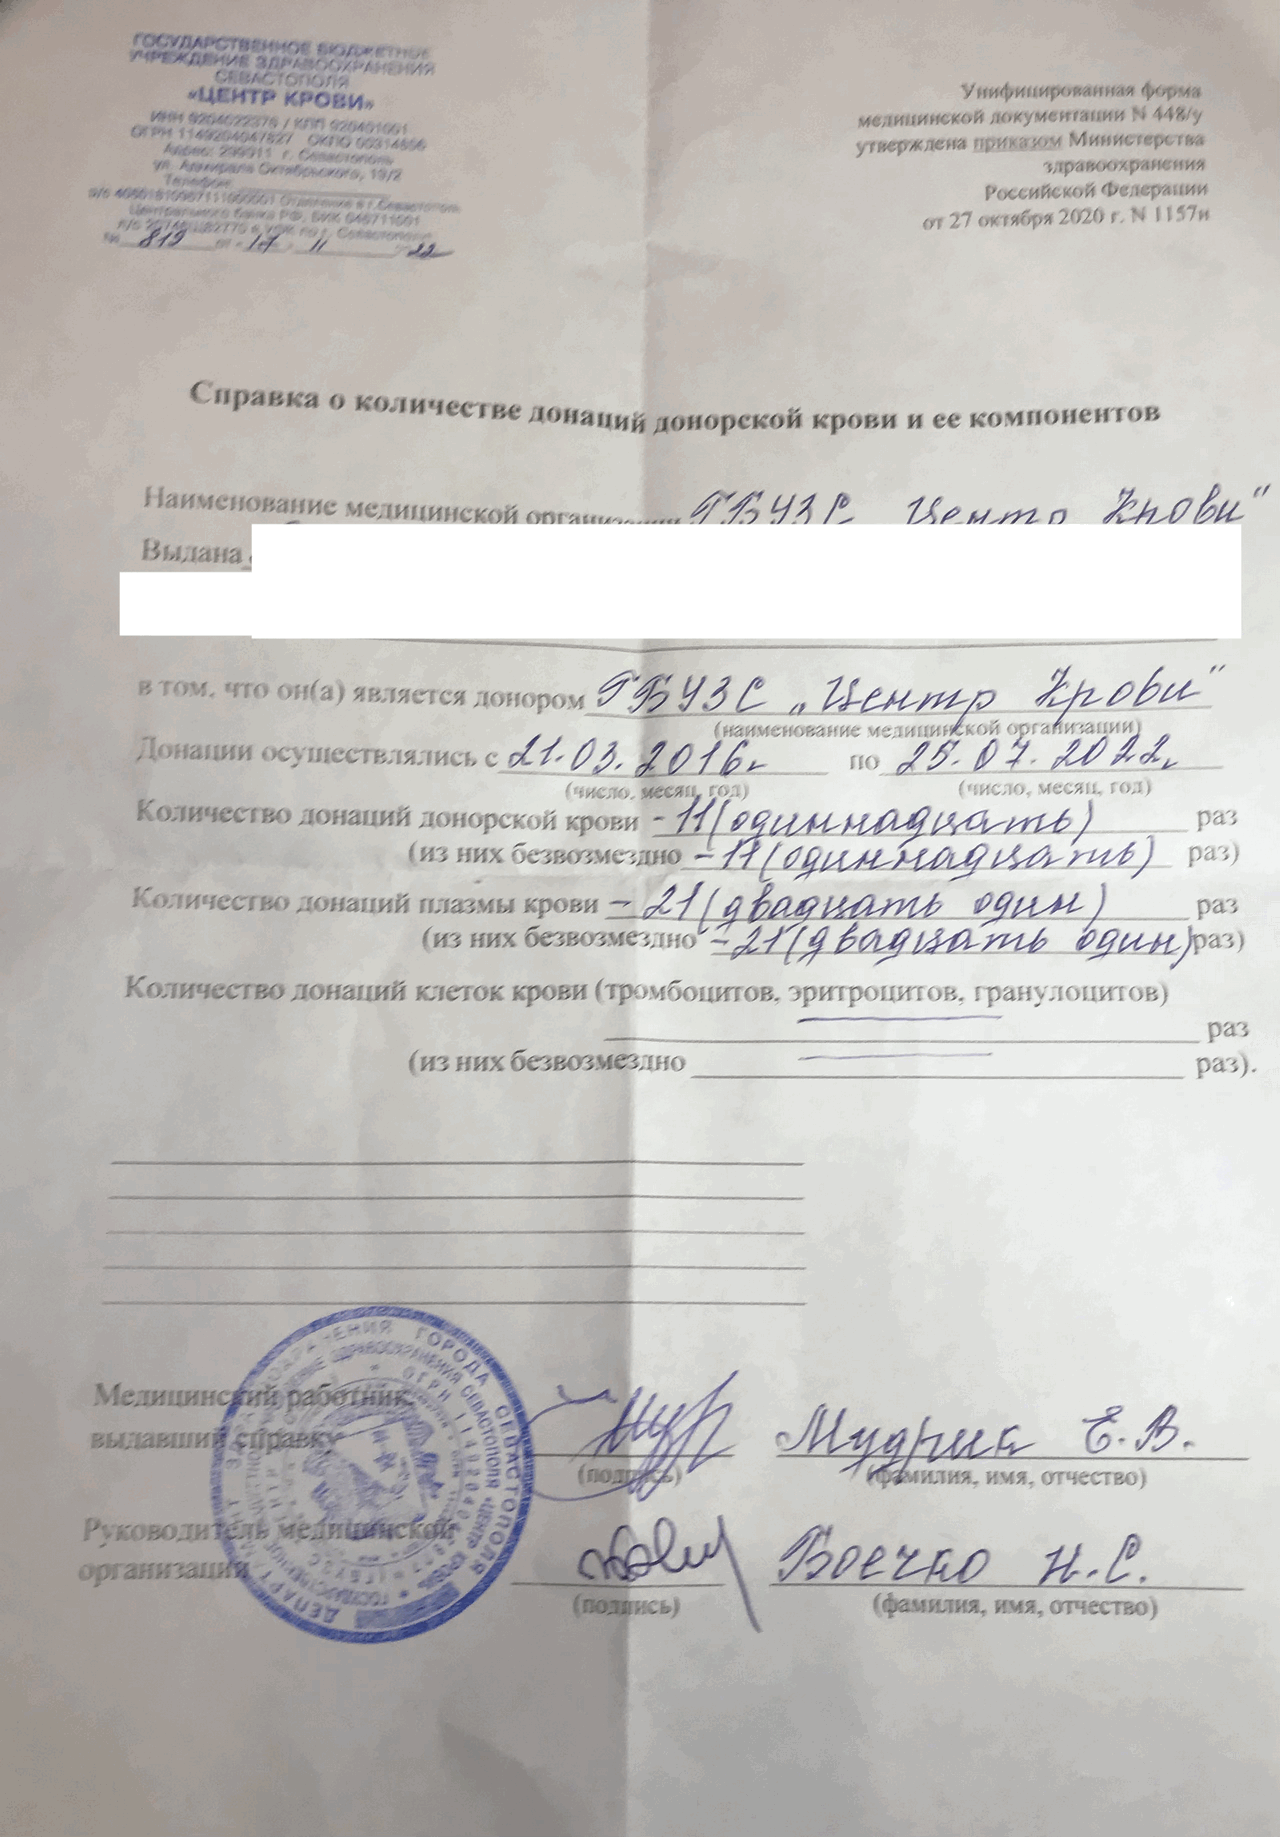 ГОСУДАРСТВЕННОЕ БЮДЖЕТНОЕ
УЧРЕЖДЕНИЕ ЗДРАВООХРАНЕНИЯ
СЕВАСТОПОЛЯ
«ЦЕНТР КРОВИ»
ИНН 9204022376 / КПП 920401001
ОГРН 1149204047827 ОКПО 00314656
Адрес: 299011 г. Севастополь
ул. Адмирала Октябрьского, 19/2
Телефон:
Отделение в г.Севастополь
Центрального банка РФ, БИК 046711001
№ 819 от 17 11 22
Унифицированная форма
медицинской документации N 448/у
утверждена приказом Министерства
здравоохранения
Российской Федерации
от 27 октября 2020 г. N 1157н
Справка о количестве донаций донорской крови и ее компонентов
Наименование медицинской организации ГБУЗС Центр Крови"
Выдана
в том, что он(а) является донором ГБУЗС „Центр Крови"
(наименование медицинской организации)
Донации осуществлялись с 21.03.2016г по 25.07.2022г
(число, месяц, год) (число, месяц, год)
Количество донаций донорской крови - 11 (одиннадцать) раз
(из них безвозмездно - 11 (одиннадцать) раз)
Количество донаций плазмы крови - 21 (двадцать один) раз
(из них безвозмездно - 21 (двадцать один) раз)
Количество донаций клеток крови (тромбоцитов, эритроцитов, гранулоцитов)
раз
(из них безвозмездно раз).
Медицинский работник,
выдавший справку Мудрик Е.В.
(подпись) (фамилия, имя, отчество)
Руководитель медицинской
организации Боечко Н.С.
(подпись) (фамилия, имя, отчество)
ГОРОДА СЕВАСТОПОЛЯ
ЗДРАВООХРАНЕНИЯ СЕВАСТОПОЛЯ «ЦЕНТР КРОВИ»